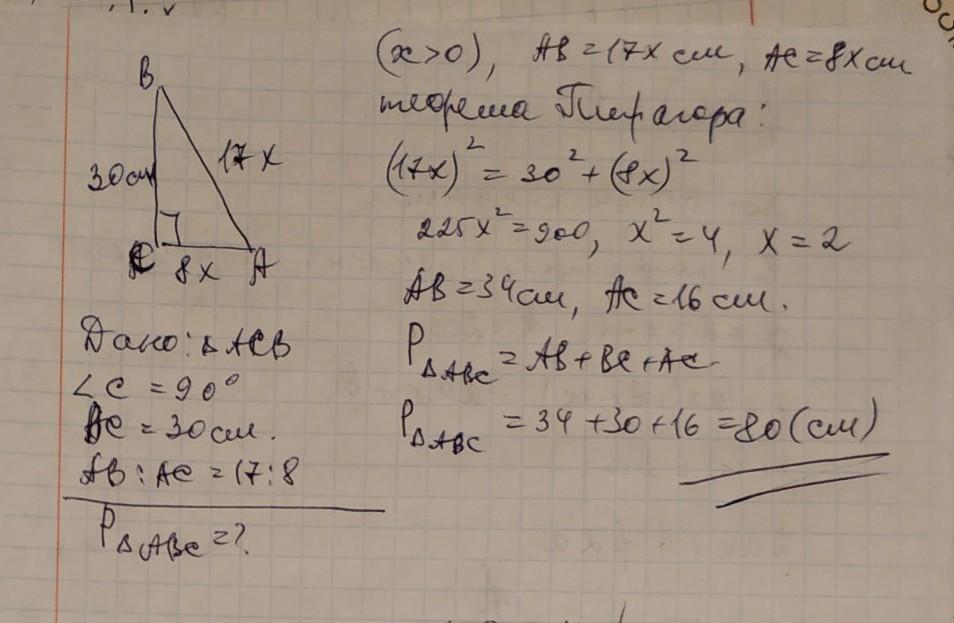 B
30см
17x
C
8x
A
Дано: △ACB
∠C = 90°
BC = 30см.
AB : AC = 17:8
P△ABC = ?
(x>0), AB = 17x см, AC = 8x см
теорема Пифагора:
(17x)² = 30² + (8x)²
225x² = 900, x² = 4, x = 2
AB = 34см, AC = 16 см.
P△ABC = AB + BC + AC
P△ABC = 34 + 30 + 16 = 80 (см)